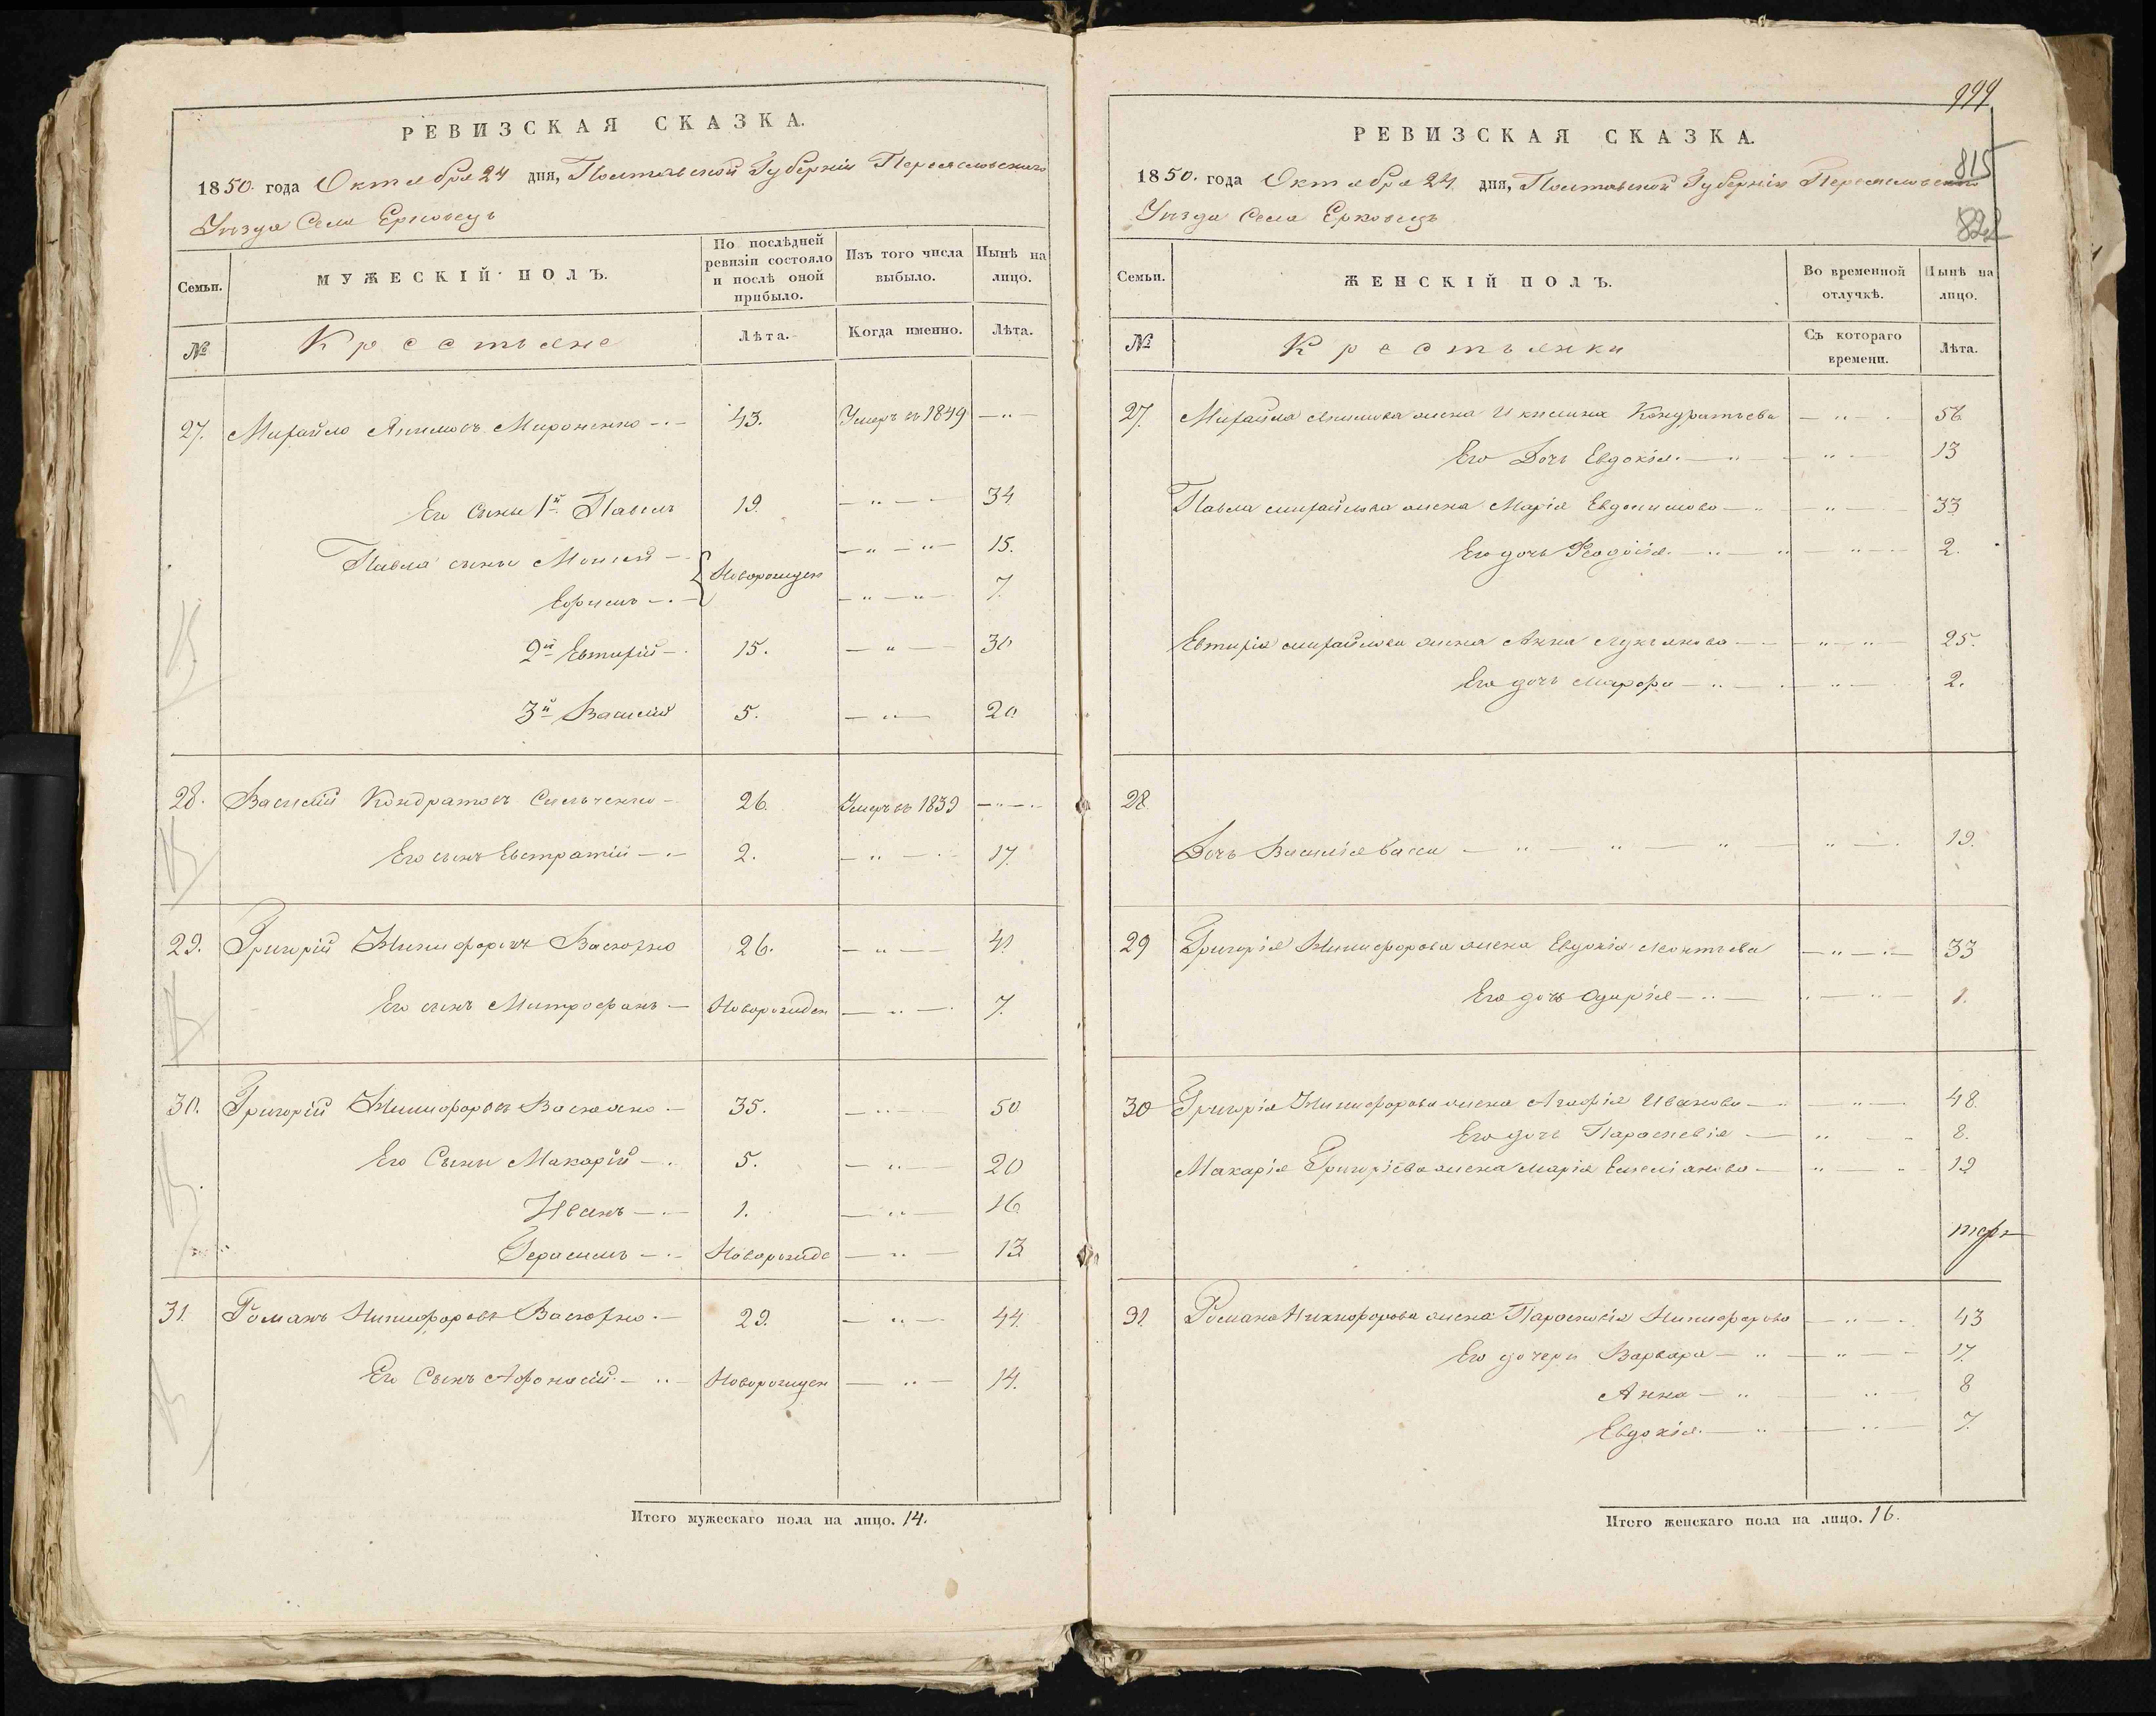 РЕВИЗСКАЯ СКАЗКА.
1850. года Октября 24 дня, Полтавской Губерніи Переяславскаго
Уѣзда Села Ерковецъ
Семьи.
МУЖЕСКІЙ ПОЛЪ.
По послѣдней ревизіи состояло и послѣ оной прибыло.
Изъ того числа выбыло.
Нынѣ на лицо.
№
Крестьяне
Лѣта.
Когда именно.
Лѣта.
27. Михайло Якимовъ Мироненко 43. Умеръ въ 1849
Его сыны 1й Павелъ 19. 34
Павла сыны Моисей 15.
Новорожден
Ефимъ 7.
2й Евтихій 15. 30
3й Василій 5. 20
28. Василій Кондратовъ Сильченко 26. Умеръ въ 1839
Его сынъ Евстратій 2. 17.
29. Григорій Никифоровъ 26. 41.
Его сынъ Митрофанъ Новорожден 7.
30. Григорій Никифоровъ 35. 50
Его Сыны Макарій 5. 20
Иванъ 1. 16
Герасимъ Новорожде 13
31. Романъ Никифоровъ 29. 44.
Его Сынъ Афонасій Новорожден 14.
Итого мужескаго пола на лицо. 14.
999
815
822
РЕВИЗСКАЯ СКАЗКА.
1850. года Октября 24. дня, Полтавской Губерніи Переяславскаго
Уѣзда Села Ерковецъ
Семьи.
ЖЕНСКІЙ ПОЛЪ.
Во временной отлучкѣ.
Нынѣ на лицо.
№
Крестьянки
Съ котораго времени.
Лѣта.
27. Михайла Якимова жена Кондратьева 56
Его Дочь Евдокія 13
Павла михайлова жена Марія Евдокимова 33
Его дочь Феодосія 2.
Евтихія михайлова жена Анна Лукьянова 25.
Его дочь Марфа 2.
28.
Дочь Василія Васса 19.
29 Григорія Никифорова жена Евдокія Леонтьева 33
Его дочь Одарія 1.
30 Григорія Никифорова жена Агафія Иванова 48.
Его дочь Параскевія 8.
Макарія Григоріева жена Марія Емеліанова 19
31. Романа Никифорова жена Параскевія Никифорова 43
Его дочери Варвара 17.
Анна 8
Евдокія 7.
Итого женскаго пола на лицо. 16.